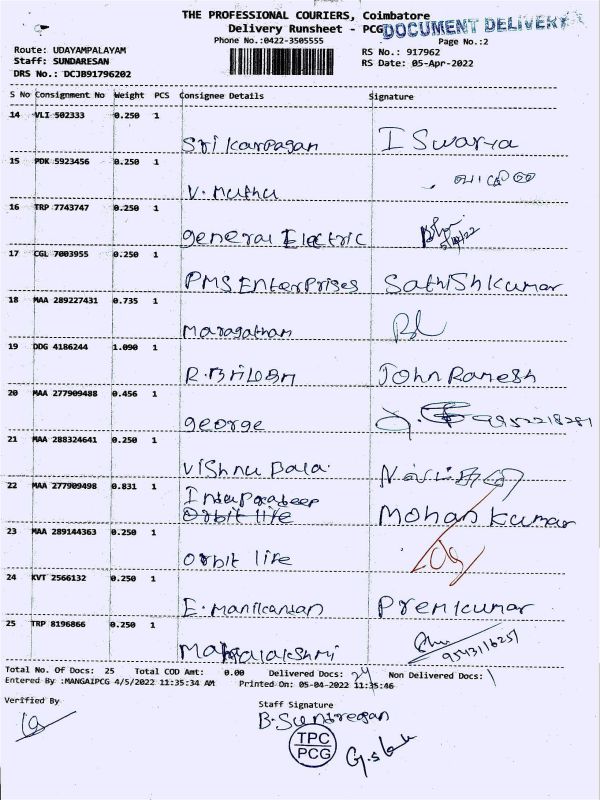 THE PROFESSIONAL COURIERS, Coimbatore
Delivery Runsheet - PCG
DOCUMENT DELIVERY
Phone No.:0422-3505555
Page No.:2
Route: UDAYAMPALAYAM
RS No.: 917962
Staff: SUNDARESAN
RS Date: 05-Apr-2022
DRS No.: DCJB91796202
S No Consignment No Weight PCS Consignee Details Signature
14 VLI 502333 0.250 1
Sri Karpagan I Swarya
15 PDK 5923456 0.250 1
V. Muthu
16 TRP 7743747 0.250 1
general Electric
17 CGL 7003955 0.250 1
PMS Enterprises Sathishkumar
18 MAA 289227431 0.735 1
Maragatham
19 DDG 4186244 1.090 1
John Ramesh
20 MAA 277909488 0.456 1
george 9952218281
21 MAA 288324641 0.250 1
Vishnu Bala.
22 MAA 277909498 0.831 1
Orbit life Mohan Kumar
23 MAA 289144363 0.250 1
Orbit life
24 KVT 2566132 0.250 1
E. Manikandan Premkumar
25 TRP 8196866 0.250 1
Mahalakshmi
9543116251
Total No. Of Docs: 25 Total COD Amt: 0.00 Delivered Docs: 24 Non Delivered Docs: 1
Entered By :MANGAIPCG 4/5/2022 11:35:34 AM Printed On: 05-04-2022 11:35:46
Verified By
Staff Signature
TPC
PCG